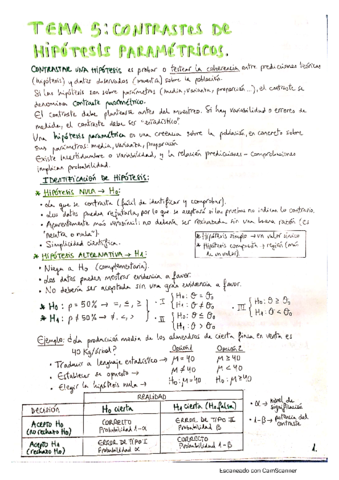 TEMA 5: CONTRASTES DE
HIPÓTESIS PARAMÉTRICOS.
CONTRASTAR UNA HIPÓTESIS es probar o testear la coherencia entre predicciones teóricas
(hipótesis) y datos observados (muestra) sobre la población.
Si las hipótesis son sobre parámetros (media, varianza, proporción...), el contraste se
denomina contraste paramétrico.
El contraste debe plantearse antes del muestreo. Si hay variabilidad o errores de
medida, el contraste debe ser "estadístico".
Una hipótesis paramétrica es una creencia sobre la población, en concreto sobre
sus parámetros: media, varianza, proporción
Existe incertidumbre o variabilidad, y la relación predicciones - comprobaciones
implican probabilidad.
IDENTIFICACIÓN DE HIPÓTESIS:
* HIPÓTESIS NULA → H0:
• La que se contrasta (fácil de identificar y comprobar).
• Los datos pueden refutarla, por lo que se aceptará si las pruebas no indican lo contrario.
• Aparentemente más verosímil: no debería ser rechazada sin una buena razón (es
"neutra o nula").
• Simplicidad científica.
* Hipótesis simple → un valor único
* Hipótesis compuesta → región (más de un valor).
* HIPÓTESIS ALTERNATIVA → H1:
• Niega a H0 (complementaria).
• Los datos pueden mostrar evidencia a favor.
• No debería ser aceptada sin una gran evidencia a favor.
* H0: p = 50% → =, ≤, ≥
* H1: p ≠ 50% → ≠, <, >
• I { H0: θ = θ0
H1: θ ≠ θ0
• II { H0: θ ≤ θ0
H1: θ > θ0
• III { H0: θ ≥ θ0
H1: θ < θ0
Ejemplo: ¿La producción media de los almendros de cierta finca en venta es
40 Kg/árbol?
Opción 1 Opción 2
• Traducir a lenguaje estadístico → μ = 40 μ ≥ 40
• Establecer su opuesto → μ ≠ 40 μ < 40
• Elegir la hipótesis nula → H0: μ = 40 H0: μ ≥ 40
REALIDAD
DECISIÓN H0 cierta H0 cierta (H0 falsa)
Acepto H0 (no rechazo H0) CORRECTO Probabilidad 1-α ERROR DE TIPO II Probabilidad β
Acepto H1 (rechazo H0) ERROR DE TIPO I Probabilidad α CORRECTO Probabilidad 1-β
• α → nivel de significación
• 1-β → potencia del contraste
1.
Escaneado con CamScanner